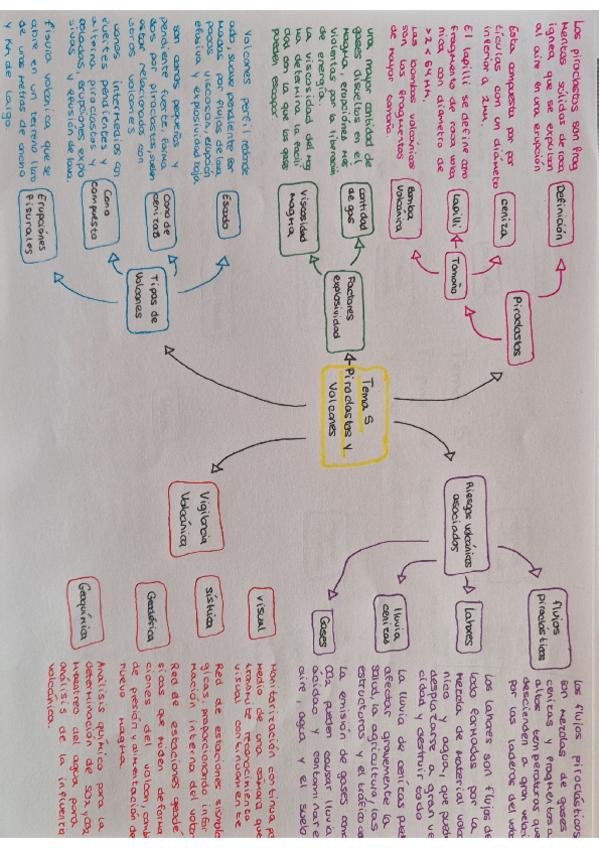 Tema 5
Piroclastos y
Volcanes
Piroclastos
Definición
Los piroclastos son frag
mentos sólidos de roca
ignea que se expulsan
al aire en una erupción
Tamaño
ceniza
Esta compuesta por par
tículas con un diámetro
inferior a 2mm.
Lapilli
El lapilli se define como
fragmento de roca volcá
nica con diámetro de
>2 < 64 mm.
Bomba
Volcánica
Las bombas volcánicas
son los fragmentos
de mayor tamaño
Factores
explosividad
cantidad
de gas
una mayor cantidad de
gases disueltos en el
magma, erupciones más
violentas por la liberación
de energía.
Viscosidad
magma
La viscosidad del mag
ma determina la facili
dad con la que los gases
pueden escapar
Tipos de
Volcanes
Escudo
Volcanes perfil redonde
ado, suave pendiente for
mados por flujos de lava
poco viscosa, erupción
efusiva y explosividad baja
Cono de
cenizas
son conos pequeños y
pendiente fuerte, forma
dos por piroclastos, suelen
estar relacionados con
otros volcanes
Cono
compuesto
conos intermedios con
fuertes pendientes y
alterna piroclastos y
coladas, erupciones explo
sivas y efusión de lava.
Erupciónes
Fisurales
fisura volcánica que se
abre en un terreno llano
de unos metros de ancho
y Km de largo
Riesgos volcánicos
asociados
flujos
piroclásticos
Los flujos piroclásticos
son mezclas de gases
cenizas y fragmentos a
altas temperaturas que
descienden a gran veloci
por las laderas del volcá
Lahares
Los lahares son flujos de
lodo formados por la
mezcla de material volcá
nico y agua, que pueden
desplazarse a gran ve
cidad y destruir todo
lluvia
cenizas
La lluvia de cenizas puede
afectar gravemente la
salud, la agricultura, las
estructuras y el tráfico aé
Gases
La emisión de gases como
CO2 pueden causar lluvia
ácida y contaminar el
aire, agua y el suelo
Vigilancia
Volcánica
visual
Monitorización continua po
medio de una camara que
transmite reconocimiento
visual continuamente
sísmica
Red de estaciones sismoló
gicas, proporcionando infor
mación interna del volcán
Geodésica
Red de estaciones geodé
sicas que miden deforma
ciones del volcán, cambio
de presión y alimentación de
nuevo magma.
Geoquímica
Análisis químico para la
determinación de SO2 y CO2
muestreo del agua para
análisis de la influencia
volcánica.